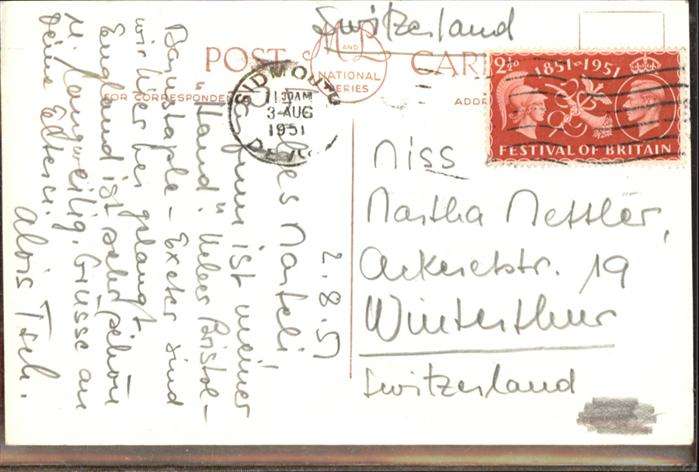 Switzerland
POST CARD
A AND B
NATIONAL
SERIES
FOR CORRESPONDENCE
ADDR
SIDMOUTH
11 30 AM
3 - AUG
1951
DEVON
2½D
1851-1951
FESTIVAL OF BRITAIN
2.8.51
Liebes Marteli
ist meiner
"Hand". Ueber Bristol-
Barnstaple - Exeter sind
wir hierher gelangt.
England ist sehr schön
u. langweilig. Grüsse an
deine Eltern.
Alois
Miss
Martha Mettler,
Ackeretstr. 19
Winterthur
Switzerland